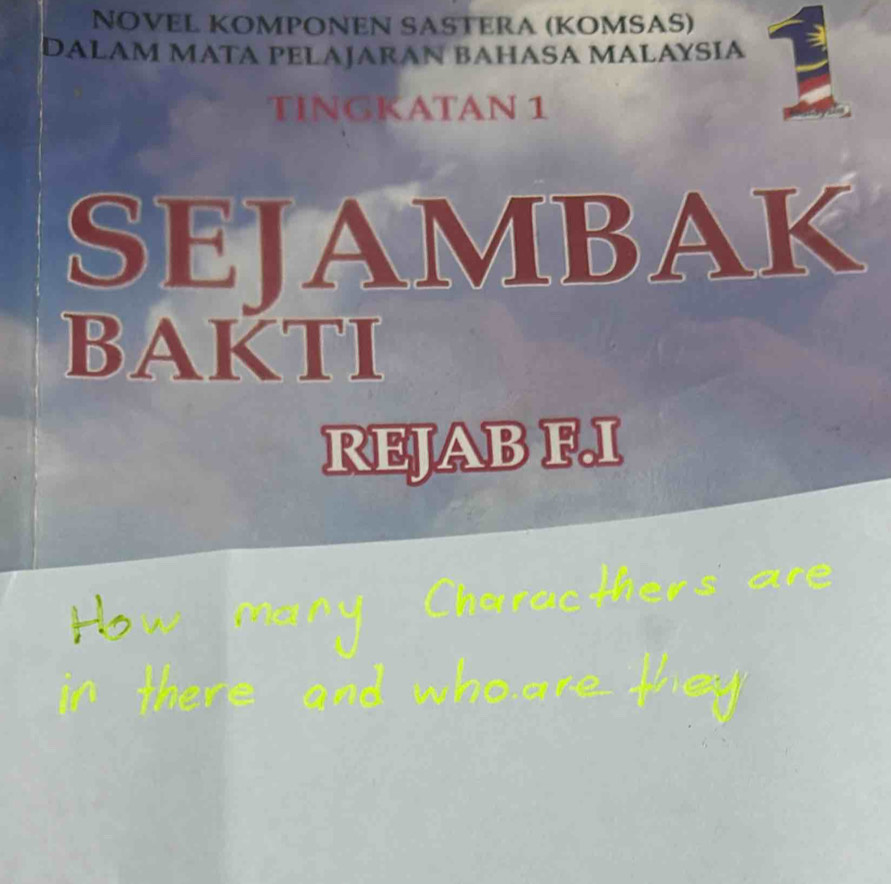 NOVEL KOMPONEN SASTERA (KOMSAS)
DALAM MATA PELAJARAN BAHASA MALAYSIA
1
TINGKATAN 1
SEJAMBAK
BAKTI
REJAB F.I
How many Characthers are
in there and who.are they